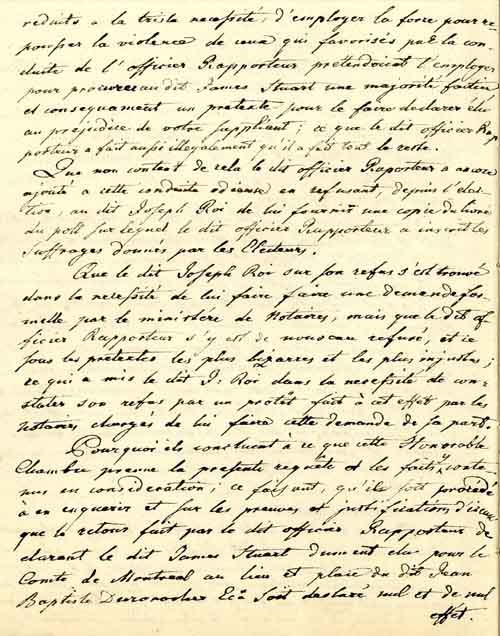 reduits a la triste necessité, d'employer la force pour re-
pousser la violence de ceux qui favorisés par la con-
duite de l'officier Rapporteur pretendoient l'employer
pour procurer au dit James Stuart une majorité factice
et consequament un pretexte pour le faire declarer élu
au prejudice de votre suppliant; ce que le dit officier Rap
porteur a fait aussi illegalement qu'il a fait tout le reste.
Que non content de cela le dit officier Raporteur a encore
ajouté a cette conduite odieuse en refusant, depuis l'elec-
tion, au dit Joseph Roi de lui fournir une copie du livre
du poll sur lequel le dit officier Rapporteur a inscrit les
suffrages donnés par les Electeurs.
Que le dit Joseph Roi sur son refus s'est trouvé
dans la necessité de lui faire faire une demande for-
melle par le ministére de Notaires, mais que le dit of
ficier Rapporteur s'y est de nouveau refusé, et ce
sous les pretextes les plus bizarres et les plus injustes;
ce qui a mis le dit J. Roi dans la necessité de con-
stater son refus par un protêt fait à cet effet par les
Notaires chargés de lui faire cette demande de sa part.
Pourquoi ils concluent à ce que cette Honorable
Chambre prenne la presente requête et les faits y conte
nus en consideration; ce faisant, qu'il soit procédé
à en enquerir et sur les preuves et justifications d'iceux
que le retour fait par le dit officier Rapporteur de
clarant le dit James Stuart dument elu pour le
Comté de Montreal au lieu et place du dit Jean
Baptiste Durocher Ecr. soit declaré nul et de nul
effet.